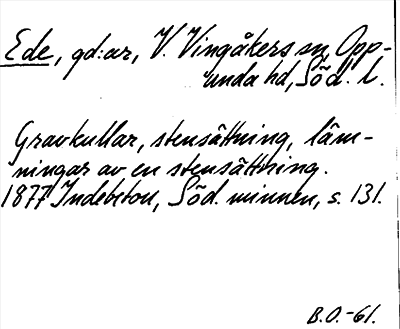 Ede, gd:ar, V. Vingåkers sn, Opp-
unda hd, Söd. l.
Gravkullar, stensättning, läm-
ningar av en stensättning.
1877 Indebetou, Söd. minnen, s. 131.
B.O.-61.